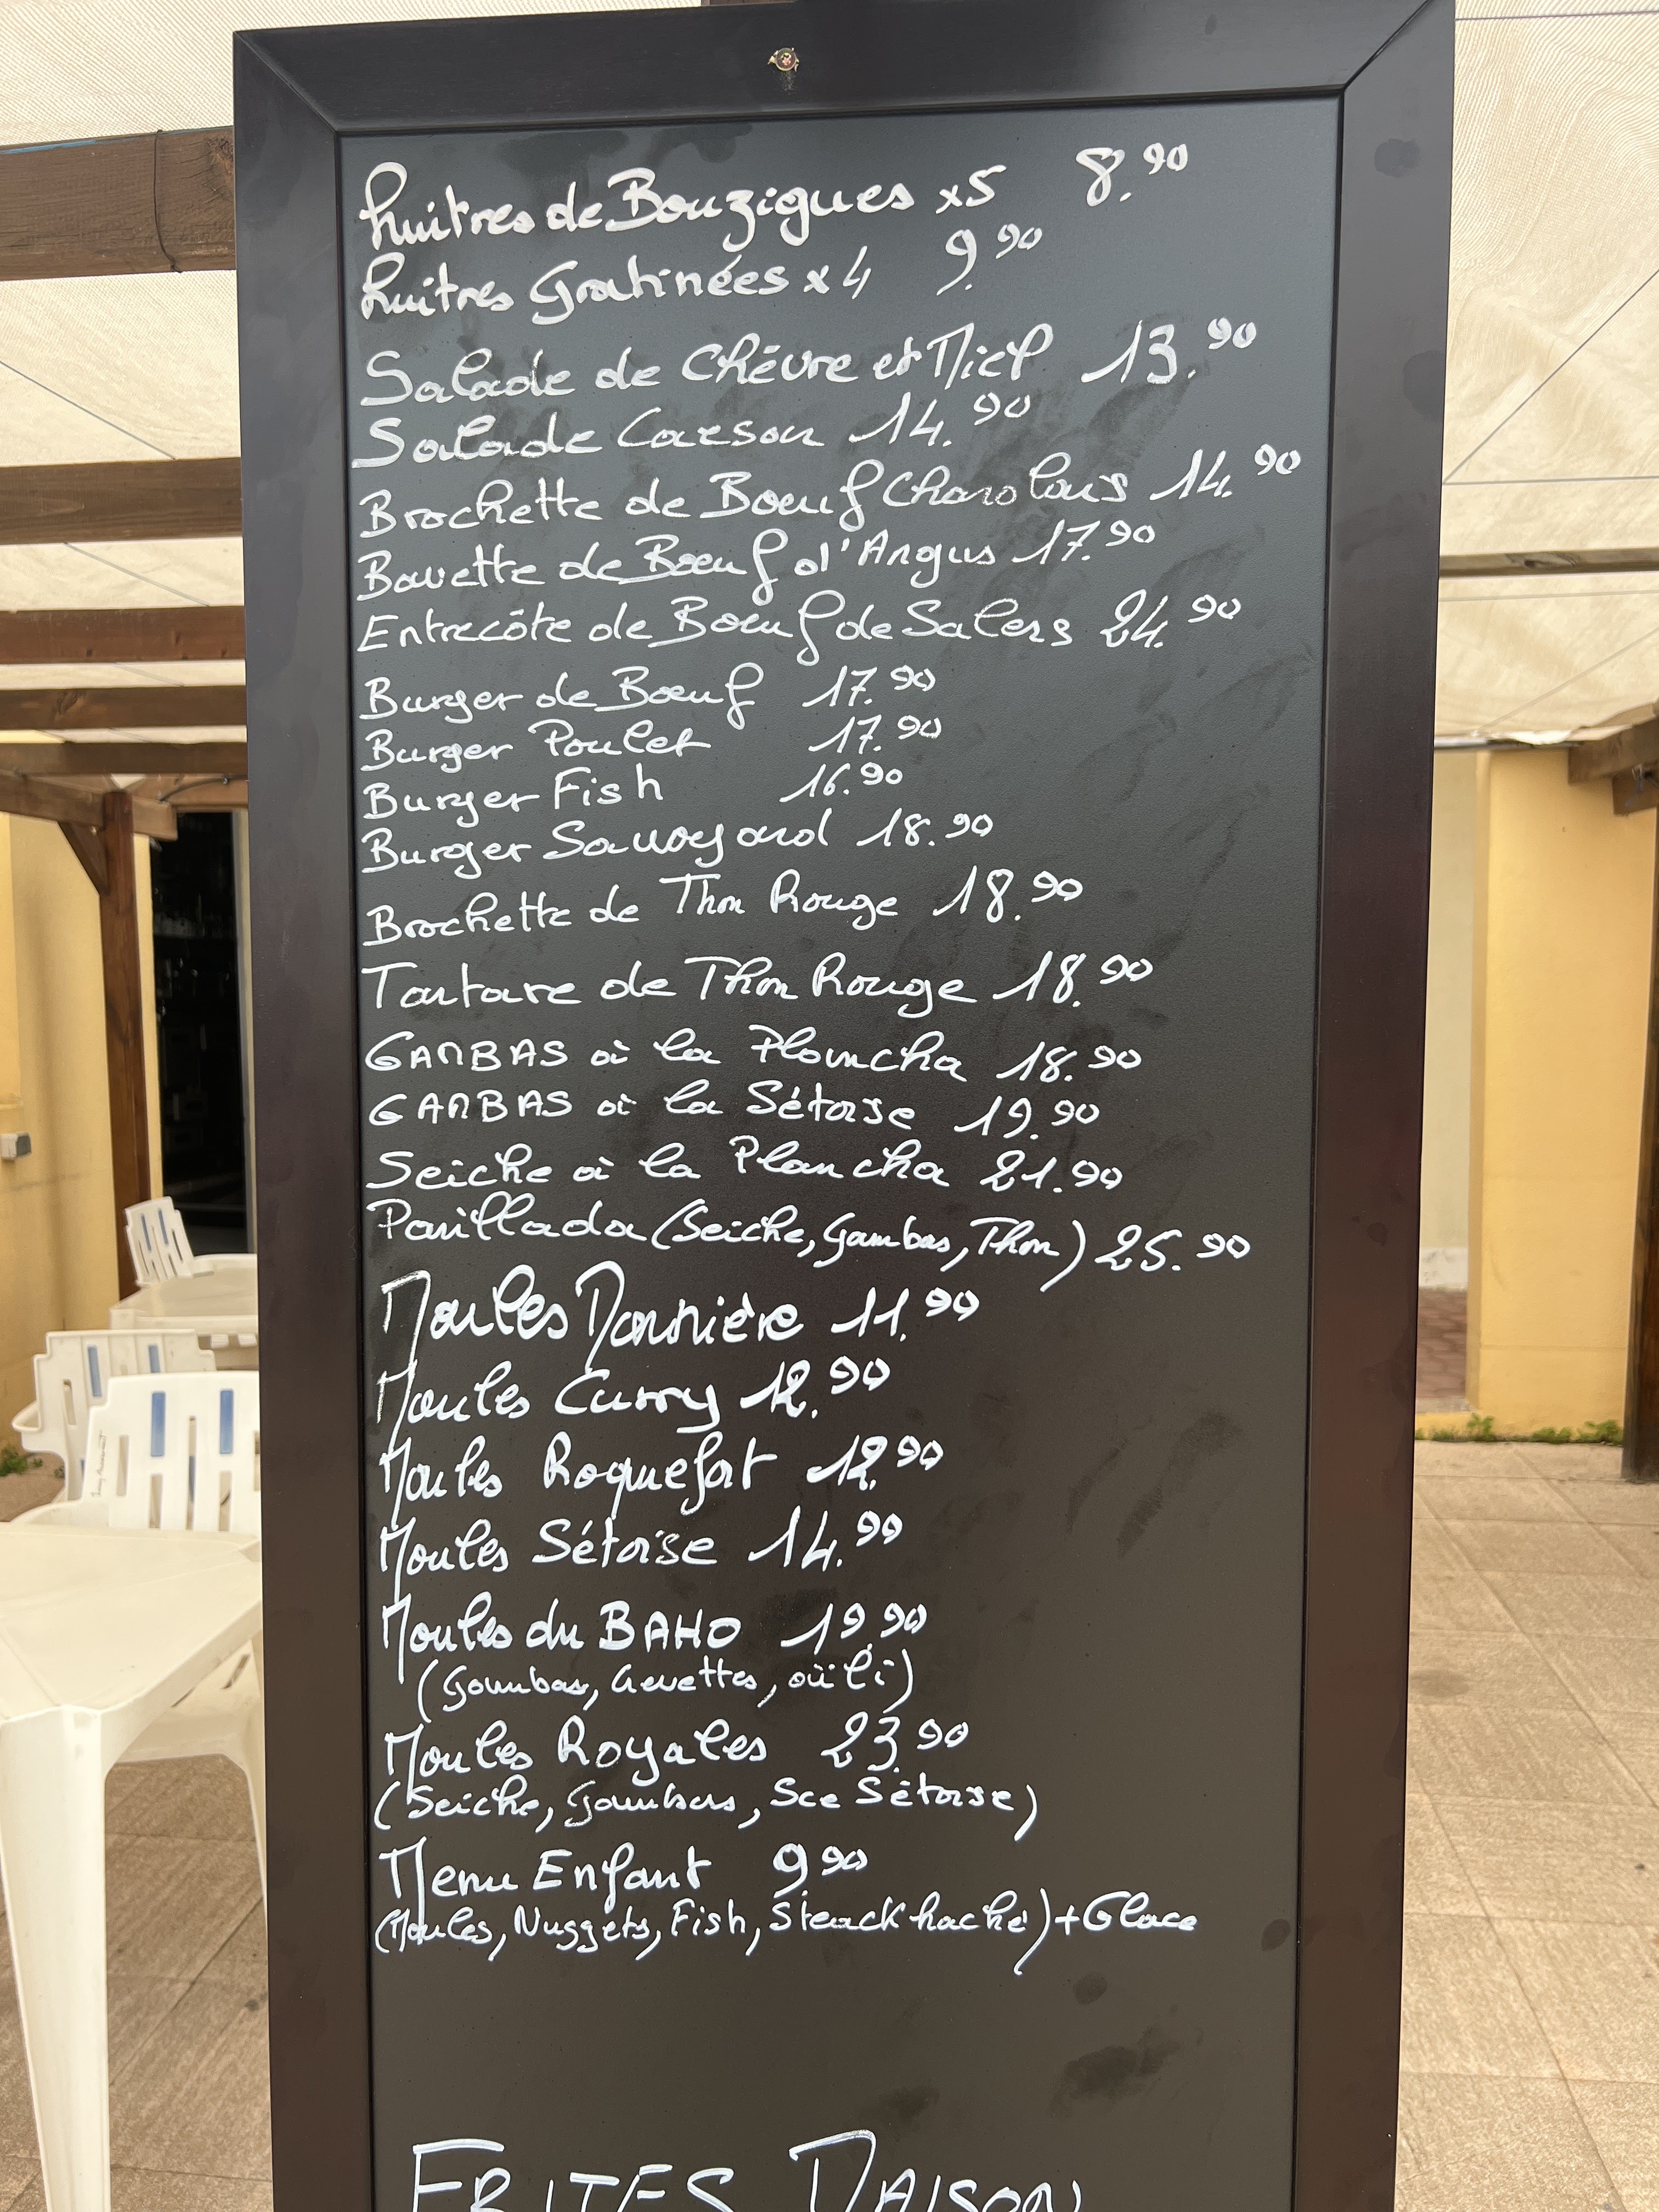 huitres de Bouzigues x5 8.90
huitres Gratinées x4 9.90
Salade de Chévre et Miel 13.90
Salade Caesar 14.90
Brochette de Boeuf Charolais 14.90
Bavette de Boeuf d'Angus 17.90
Entrecôte de Boeuf de Salers 24.90
Burger de Boeuf 17.90
Burger Poulet 17.90
Burger Fish 16.90
Burger Savoyard 18.90
Brochette de Thon Rouge 18.90
Tartare de Thon Rouge 18.90
GAMBAS à la Plancha 18.90
GAMBAS à la Sétoise 19.90
Seiche à la Plancha 21.90
Parillada (Seiche, Gambas, Thon) 25.90
Moules Marinière 11.90
Moules Curry 12.90
Moules Roquefort 12.90
Moules Sétoise 14.90
Moules du BAHO 19.90
(Gambas, Crevettes, aïoli)
Moules Royales 23.90
(Seiche, Gambas, Sce Sétoise)
Menu Enfant 9.90
(Moules, Nuggets, Fish, Steack haché) + Glace
FRITES MAISON